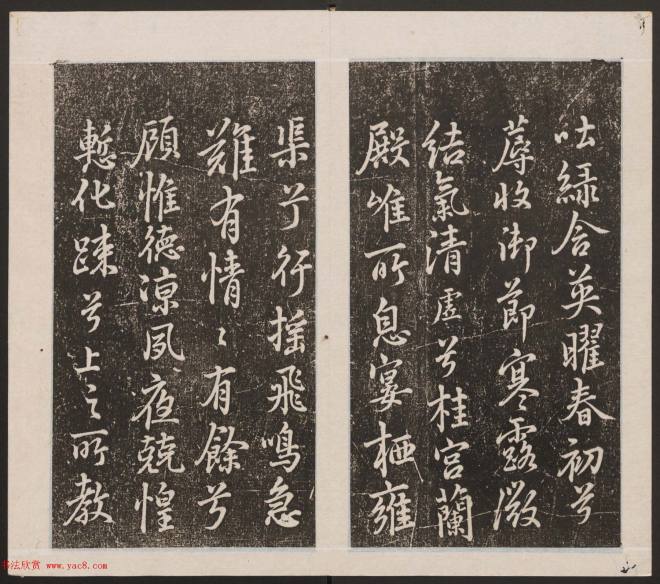 吐綠含英曜春初兮
蓐收御節寒露微
結氣清虛兮桂宮蘭
殿唯所息宴栖雍
渠兮行搖飛鳴急
難有情〻有餘兮
顧惟德涼夙夜兢惶
慙化踈兮上之所教
书法欣赏 www.yac8.com